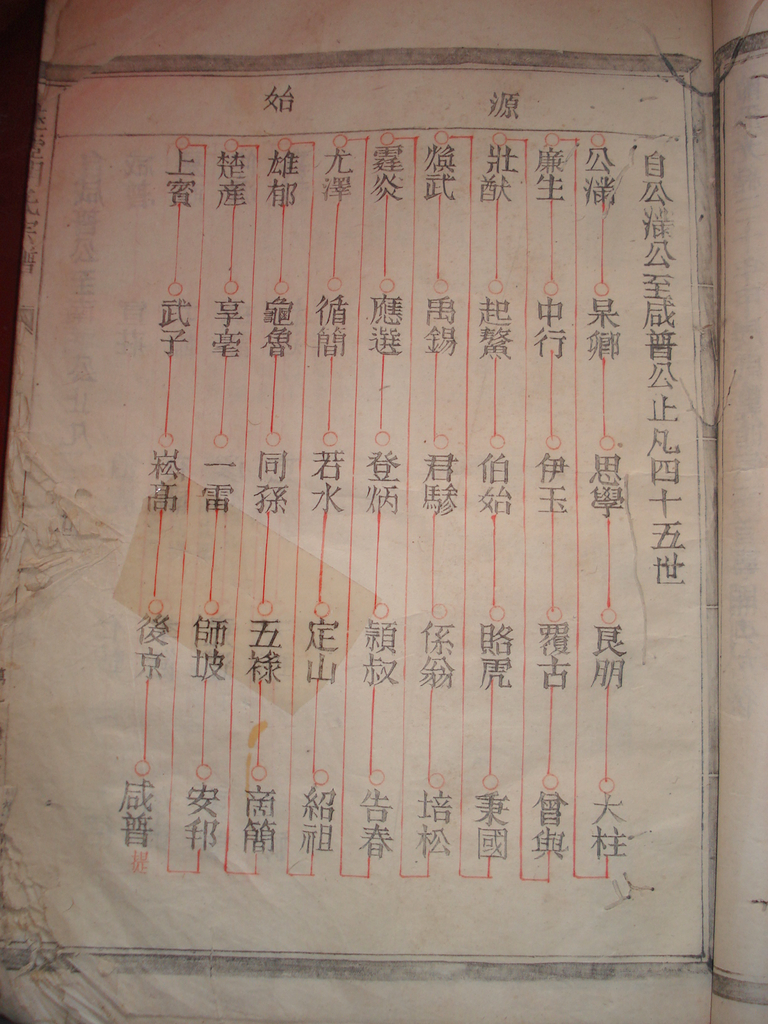 源始
自公滿公至咸普公止凡四十五世
公滿 杲卿 思學 良朋 大柱
廉生 中行 伊玉 覆古 曾與
壯猷 起鰲 伯始 賂虎 秉國
煥武 禹錫 君驂 係翁 培松
霆炎 應選 登炳 穎叔 告春
尤澤 循簡 若水 定山 紹祖
雄郁 龜魯 同孫 五祿 南簡
楚產 享毫 一雷 師坡 安邦
上賓 武子 崧高 後京 咸普